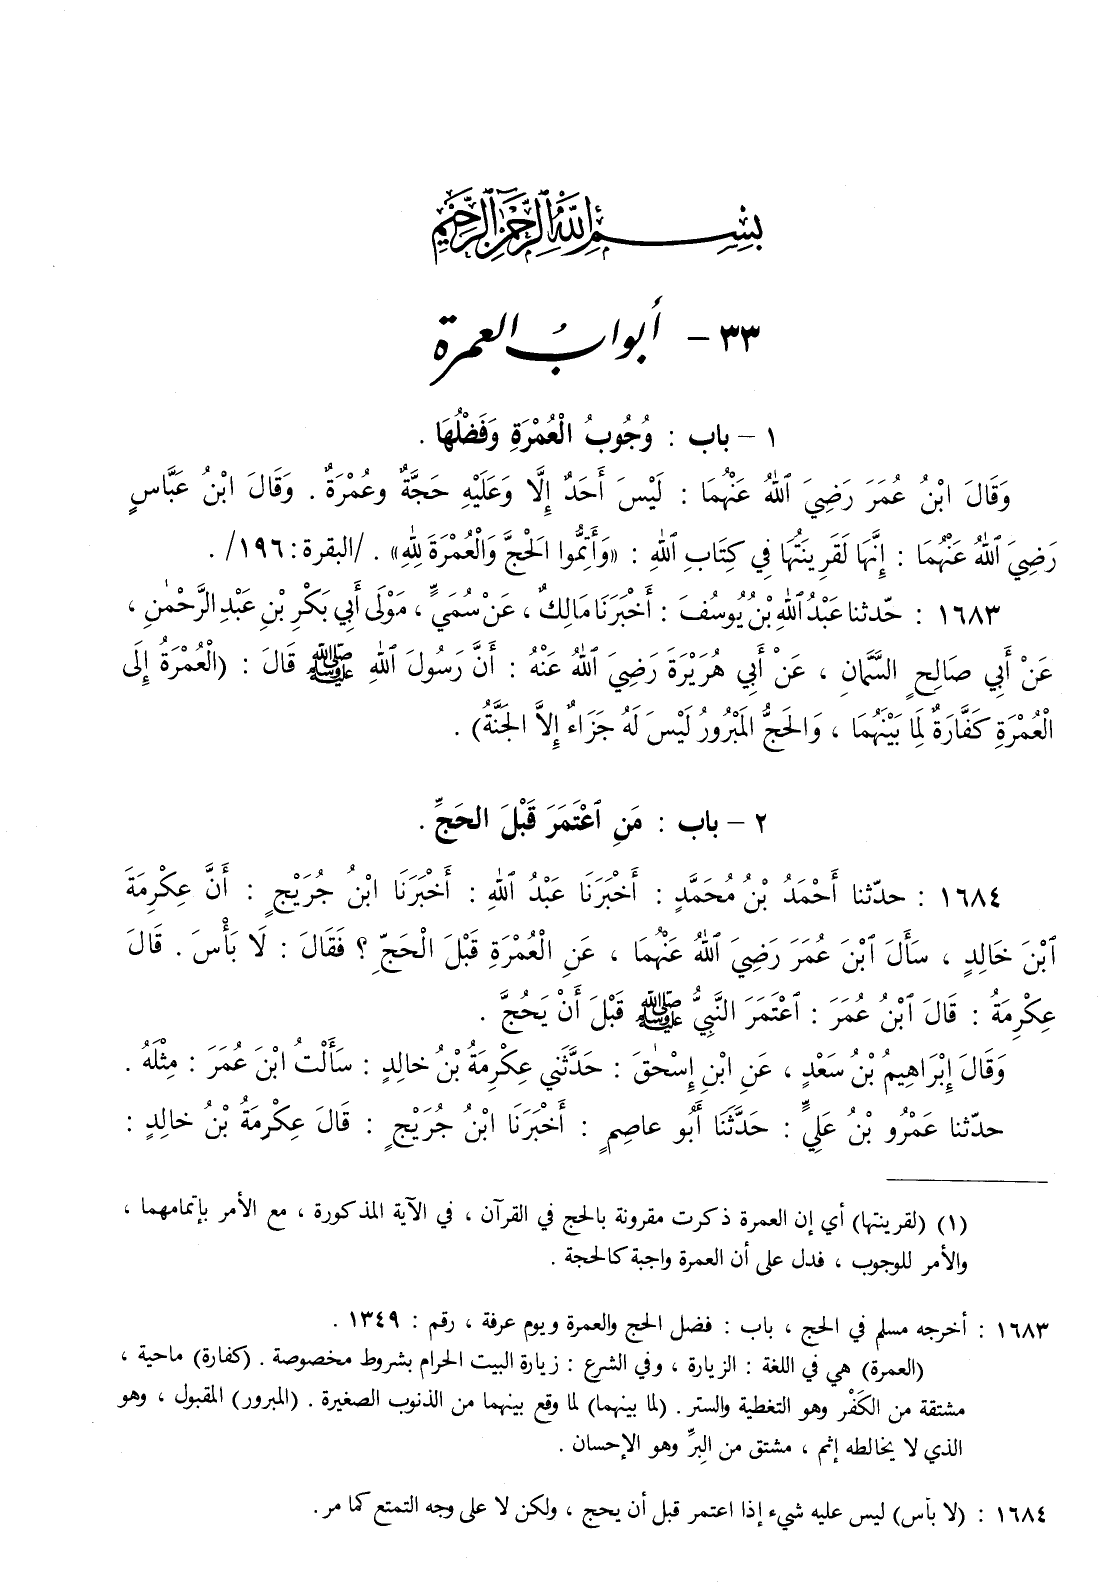 بِسْمِ ٱللَّهِ ٱلرَّحْمَٰنِ ٱلرَّحِيمِ
٣٣ – أبوابُ العمرة
١ – باب : وُجُوبُ الْعُمْرَةِ وَفَضْلُهَا .
وَقَالَ ابْنُ عُمَرَ رَضِيَ ٱللهُ عَنْهُمَا : لَيْسَ أَحَدٌ إِلَّا وَعَلَيْهِ حَجَّةٌ وعُمْرَةٌ . وَقَالَ ابْنُ عَبَّاسٍ
رَضِيَ ٱللهُ عَنْهُمَا : إِنَّهَا لَقَرِينَتُهَا فِي كِتَابِ ٱللهِ : «وَأَتِمُّوا الْحَجَّ وَالْعُمْرَةَ لِلهِ» . /البقرة: ١٩٦/ .
١٦٨٣ : حّدثنا عَبْدُ ٱللهِ بْنُ يُوسُفَ : أَخْبَرَنَا مَالِكٌ ، عَنْ سُمَيٍّ ، مَوْلَى أَبِي بَكْرِ بْنِ عَبْدِ الرَّحْمٰنِ ،
عَنْ أَبِي صَالِحٍ السَّمَّانِ ، عَنْ أَبِي هُرَيْرَةَ رَضِيَ ٱللهُ عَنْهُ : أَنَّ رَسُولَ ٱللهِ ﷺ قَالَ : (الْعُمْرَةُ إِلَى
الْعُمْرَةِ كَفَّارَةٌ لِمَا بَيْنَهُمَا ، وَالحَجُّ المَبْرُورُ لَيْسَ لَهُ جَزَاءٌ إِلَّا الجَنَّةُ) .
٢ – باب : مَنِ ٱعْتَمَرَ قَبْلَ الحَجِّ .
١٦٨٤ : حدّثنا أَحْمَدُ بْنُ مُحَمَّدٍ : أَخْبَرَنَا عَبْدُ ٱللهِ : أَخْبَرَنَا ابْنُ جُرَيْجٍ : أَنَّ عِكْرِمَةَ
ٱبْنَ خَالِدٍ ، سَأَلَ ٱبْنَ عُمَرَ رَضِيَ ٱللهُ عَنْهُمَا ، عَنِ الْعُمْرَةِ قَبْلَ الْحَجِّ ؟ فَقَالَ : لَا بَأْسَ . قَالَ
عِكْرِمَةُ : قَالَ ٱبْنُ عُمَرَ : ٱعْتَمَرَ النَّبِيُّ ﷺ قَبْلَ أَنْ يَحُجَّ .
وَقَالَ إِبْرَاهِيمُ بْنُ سَعْدٍ ، عَنِ ابْنِ إِسْحٰقَ : حَدَّثَنِي عِكْرِمَةُ بْنُ خالِدٍ : سَأَلْتُ ابْنَ عُمَرَ : مِثْلَهُ .
حدّثنا عَمْرُو بْنُ عَلِيٍّ : حَدَّثَنَا أَبُو عاصِمٍ : أَخْبَرَنَا ابْنُ جُرَيْجٍ : قَالَ عِكْرِمَةُ بْنُ خالِدٍ :
(١) (لقرينتها) أي إن العمرة ذكرت مقرونة بالحج في القرآن ، في الآية المذكورة ، مع الأمر بإتمامهما ،
والأمر للوجوب ، فدل على أن العمرة واجبة كالحجة .
١٦٨٣ : أخرجه مسلم في الحج ، باب : فضل الحج والعمرة ويوم عرفة ، رقم : ١٣٤٩ .
(العمرة) هي في اللغة : الزيارة ، وفي الشرع : زيارة البيت الحرام بشروط مخصوصة . (كفارة) ماحية ،
مشتقة من الكَفْر وهو التغطية والستر . (لما بينهما) لما وقع بينهما من الذنوب الصغيرة . (المبرور) المقبول ، وهو
الذي لا يخالطه إثم ، مشتق من البِرِّ وهو الإحسان .
١٦٨٤ : (لا بأس) ليس عليه شيء إذا اعتمر قبل أن يحج ، ولكن لا على وجه التمتع كما مر .